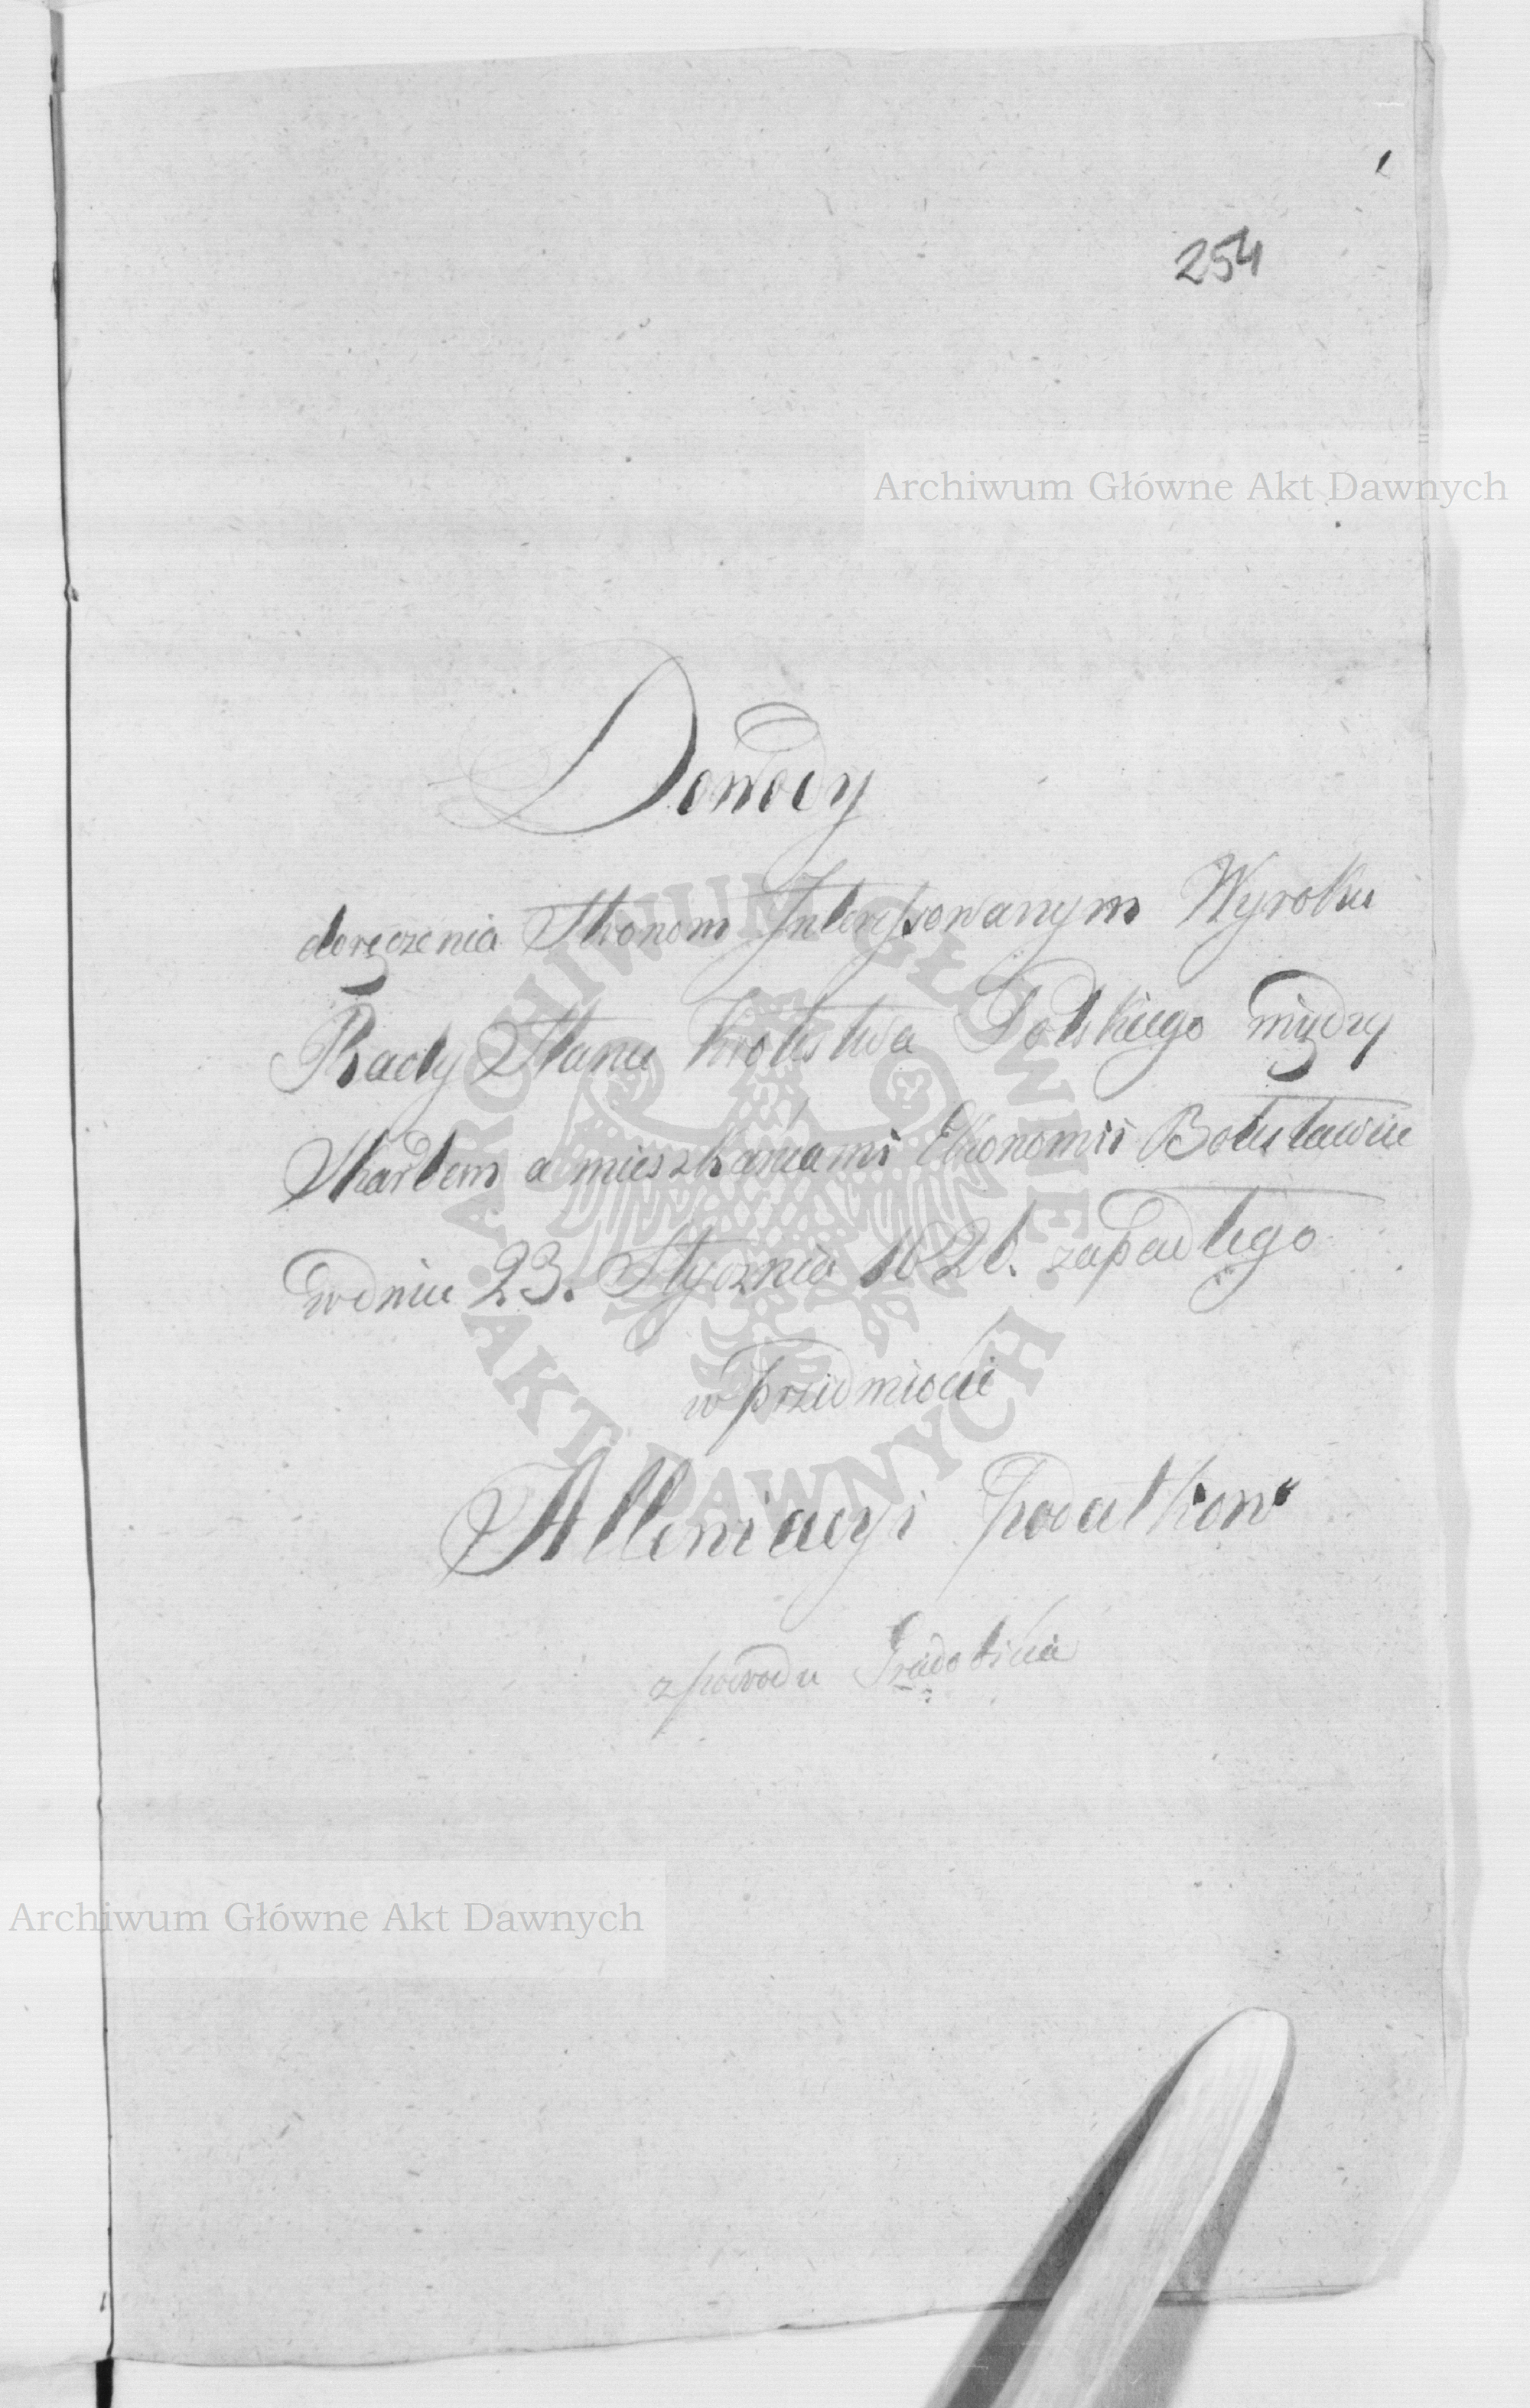 254
Archiwum Główne Akt Dawnych
Dowody
doręczenia Stronom Interessowanym Wyroku
Rady Stanu Królestwa Polskiego między
Skarbem a mieszkańcami Ekonomii Bolesławiec
w dniu 23. Stycznia 1826. zapadłego
w przedmiocie
Allewiacyi podatków
z powodu Gradobicia
ARCHIWUM GŁÓWNE AKT DAWNYCH
Archiwum Główne Akt Dawnych